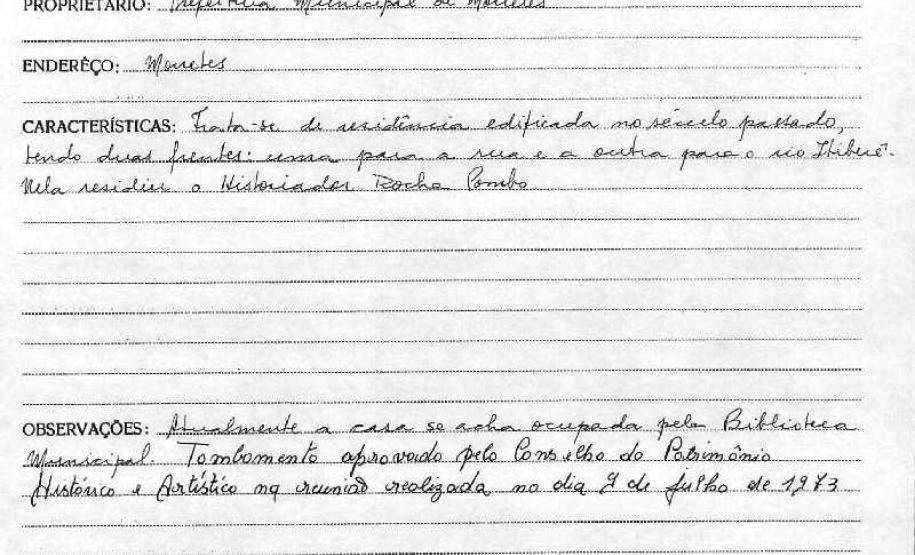 PROPRIETÁRIO: Prefeitura Municipal de Morretes
ENDERÊÇO: Morretes
CARACTERÍSTICAS: Trata-se de residência edificada no século passado,
tendo duas frentes: uma para a rua e a outra para o rio Itiberê.
Nela residiu o Historiador Rocha Pombo
OBSERVAÇÕES: Atualmente a casa se acha ocupada pela Biblioteca
Municipal. Tombamento aprovado pelo Conselho do Patrimônio
Histórico e Artístico na reunião realizada no dia 9 de julho de 1973